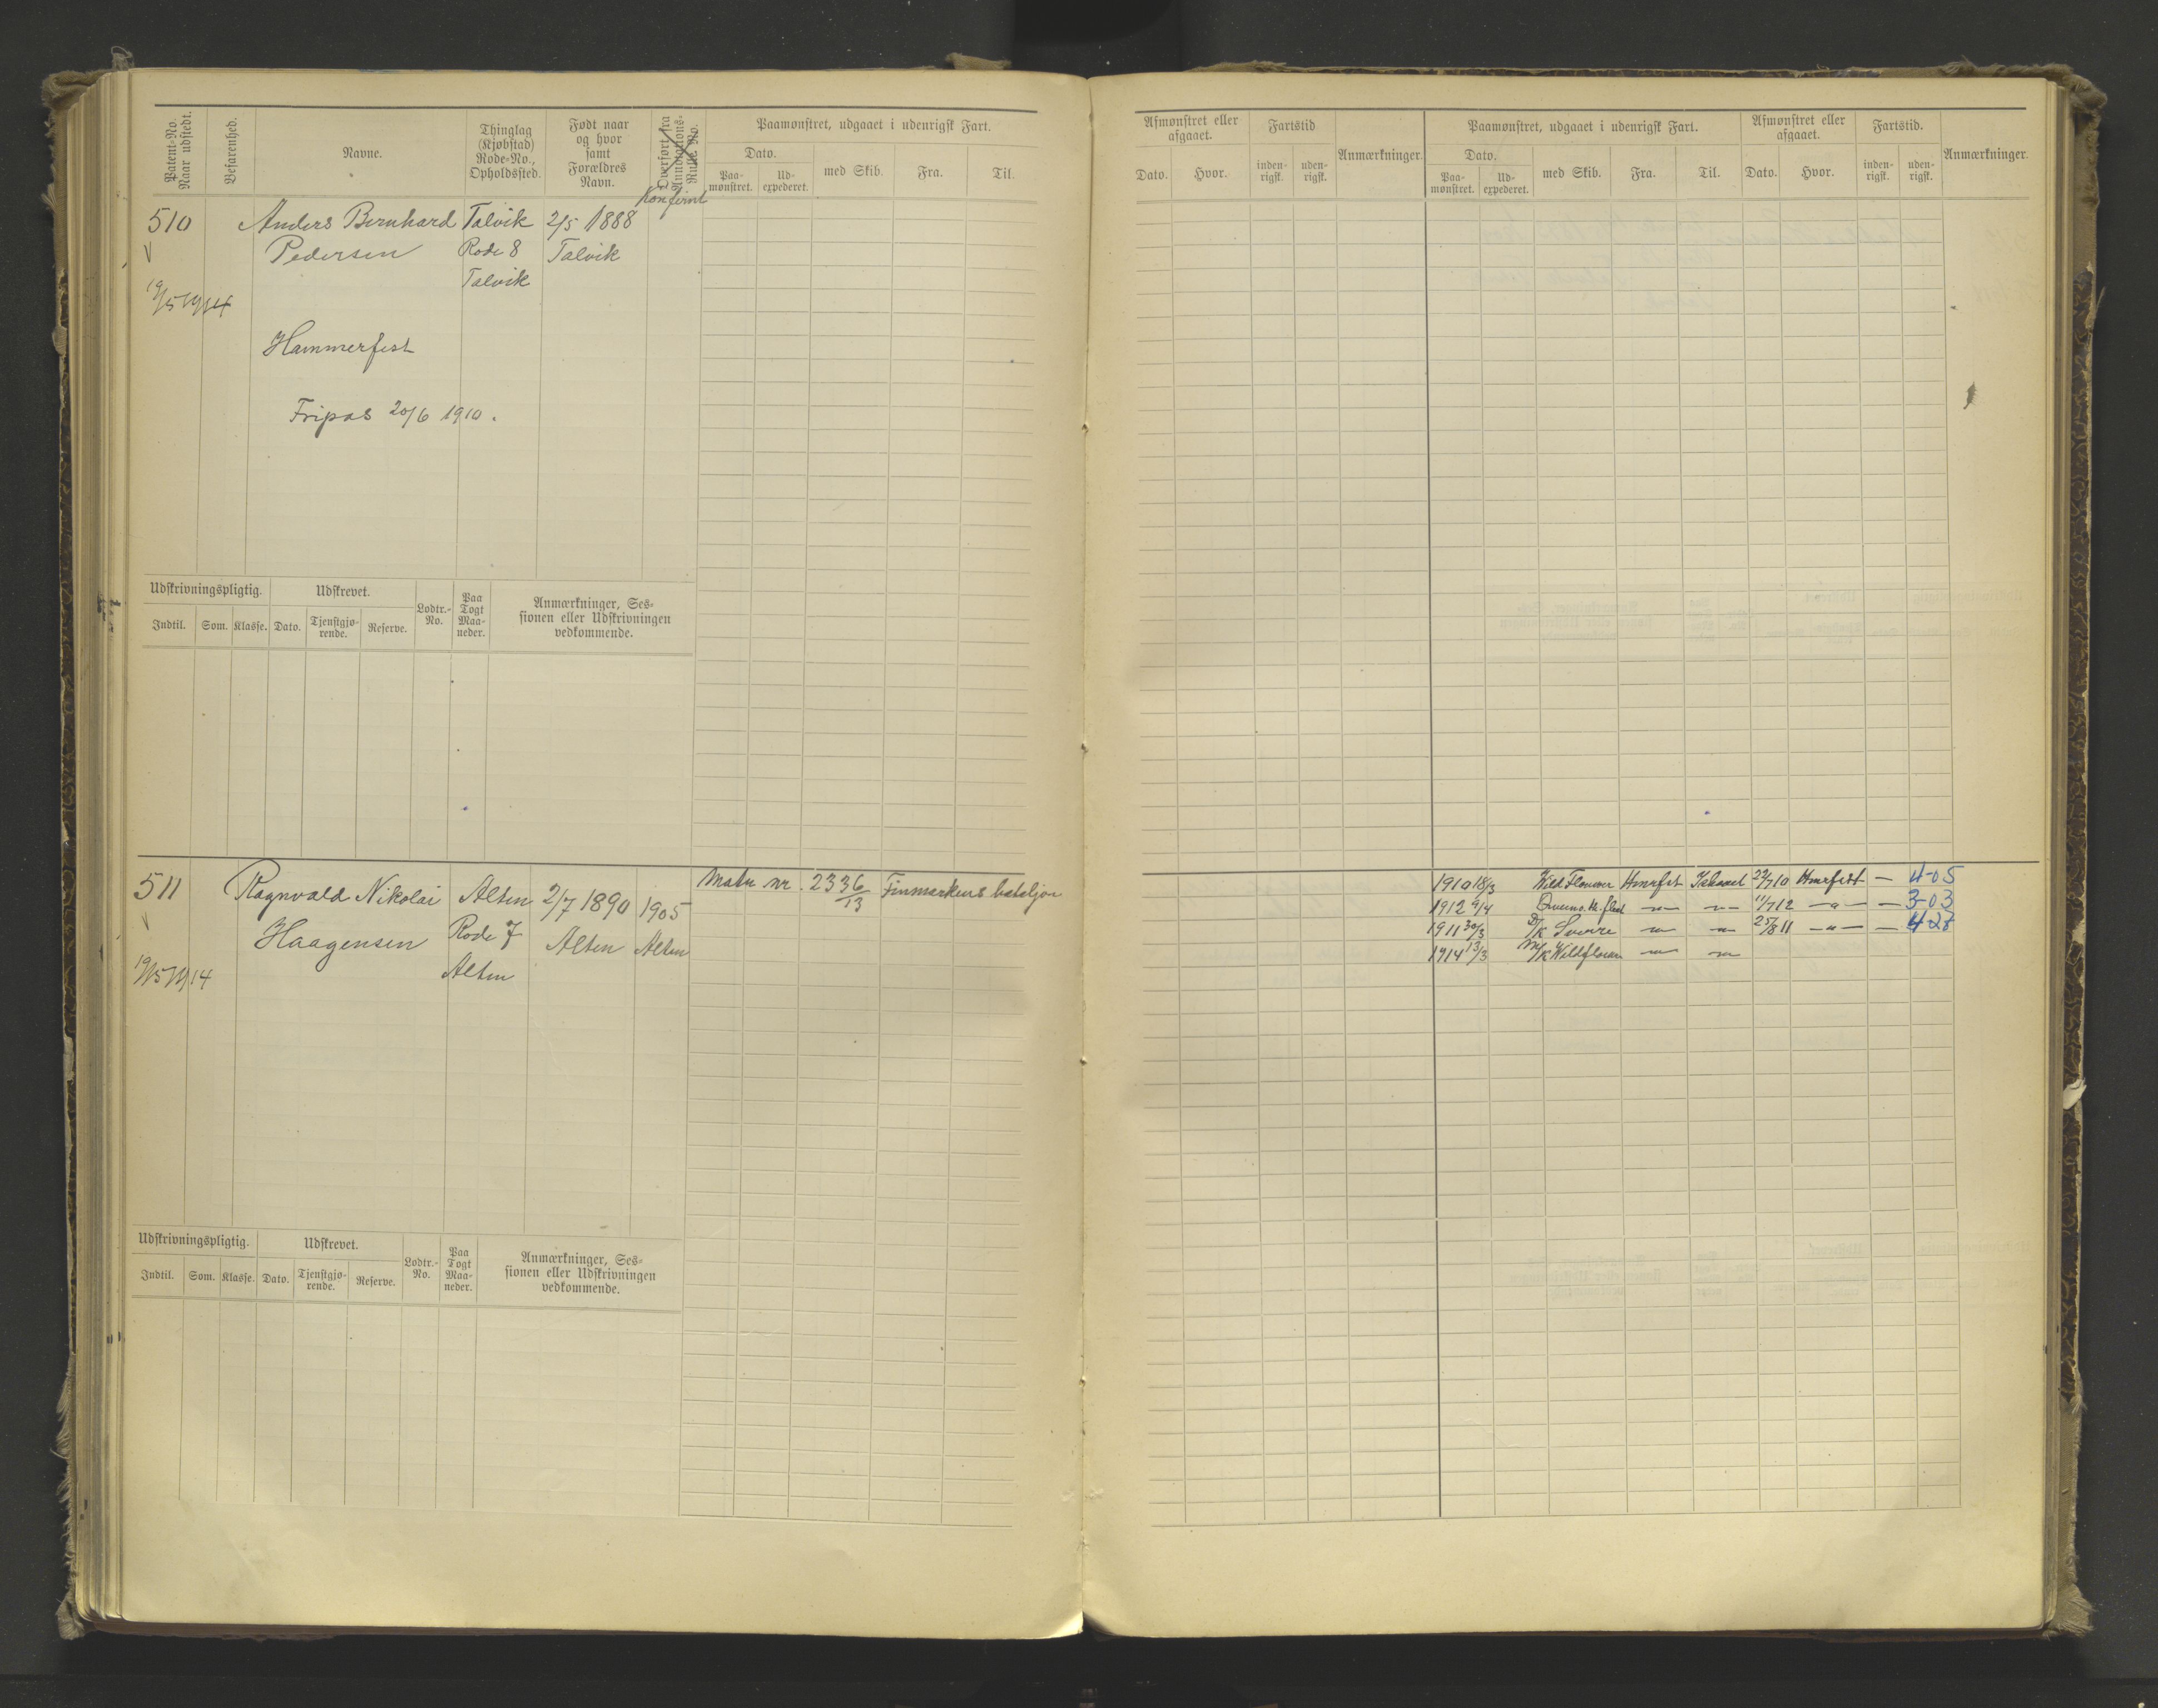 Patent-No. Naar udstedt.
Befarenhed.
Navne.
Thinglag (Kjøbstad) Rode-No., Opholdssted.
Født naar og hvor samt Forældres Navn.
Overført fra Annotations-Rulle No.
Konfirmt
Paamønstret, udgaaet i udenrigsk Fart.
Dato.
Paa-mønstret.
Ud-expederet.
med Skib.
Fra.
Til.
510
Anders Bernhard Talvik 2/5 1888
Pedersen Rode 8 Talvik
Talvik
19/5 1914
Hammerfest
Fripas 20/6 1910.
Udskrivningspligtig.
Udskrevet.
Lodtr.-No.
Paa Togt Maa-neder.
Anmærkninger, Ses-
sionen eller Udskrivningen
vedkommende.
Indtil.
Som.
Klasse.
Dato.
Tjenstgjø-rende.
Reserve.
511 Ragnvald Nikolai Alten 2/7 1890 1905
Haagensen Rode 7 Alten Alten
Alten
19/5 1914
Matr nr. 2336/13 Finmarkens bataljon
Udskrivningspligtig.
Udskrevet.
Lodtr.-No.
Paa Togt Maa-neder.
Anmærkninger, Ses-
sionen eller Udskrivningen
vedkommende.
Indtil.
Som.
Klasse.
Dato.
Tjenstgjø-rende.
Reserve.
Afmønstret eller afgaaet.
Dato.
Hvor.
Fartstid
inden-rigsk.
uden-rigsk.
Anmærkninger.
Paamønstret, udgaaet i udenrigsk Fart.
Dato.
Paa-mønstret.
Ud-expederet.
med Skib.
Fra.
Til.
Afmønstret eller afgaaet.
Dato.
Hvor.
Fartstid.
inden-rigsk.
uden-rigsk.
Anmærkninger.
1910 18/3 Wild Flower Hmrfst Ishavet 22/7 10 Hmrfest — 4-05
1912 9/4 — " — — " — 11/7 12 — " — — 3-03
1911 30/3 D/K Sverre — " — — " — 25/8 11 — " — — 4-28
1914 13/3 M/K Wildflower — " — — " —